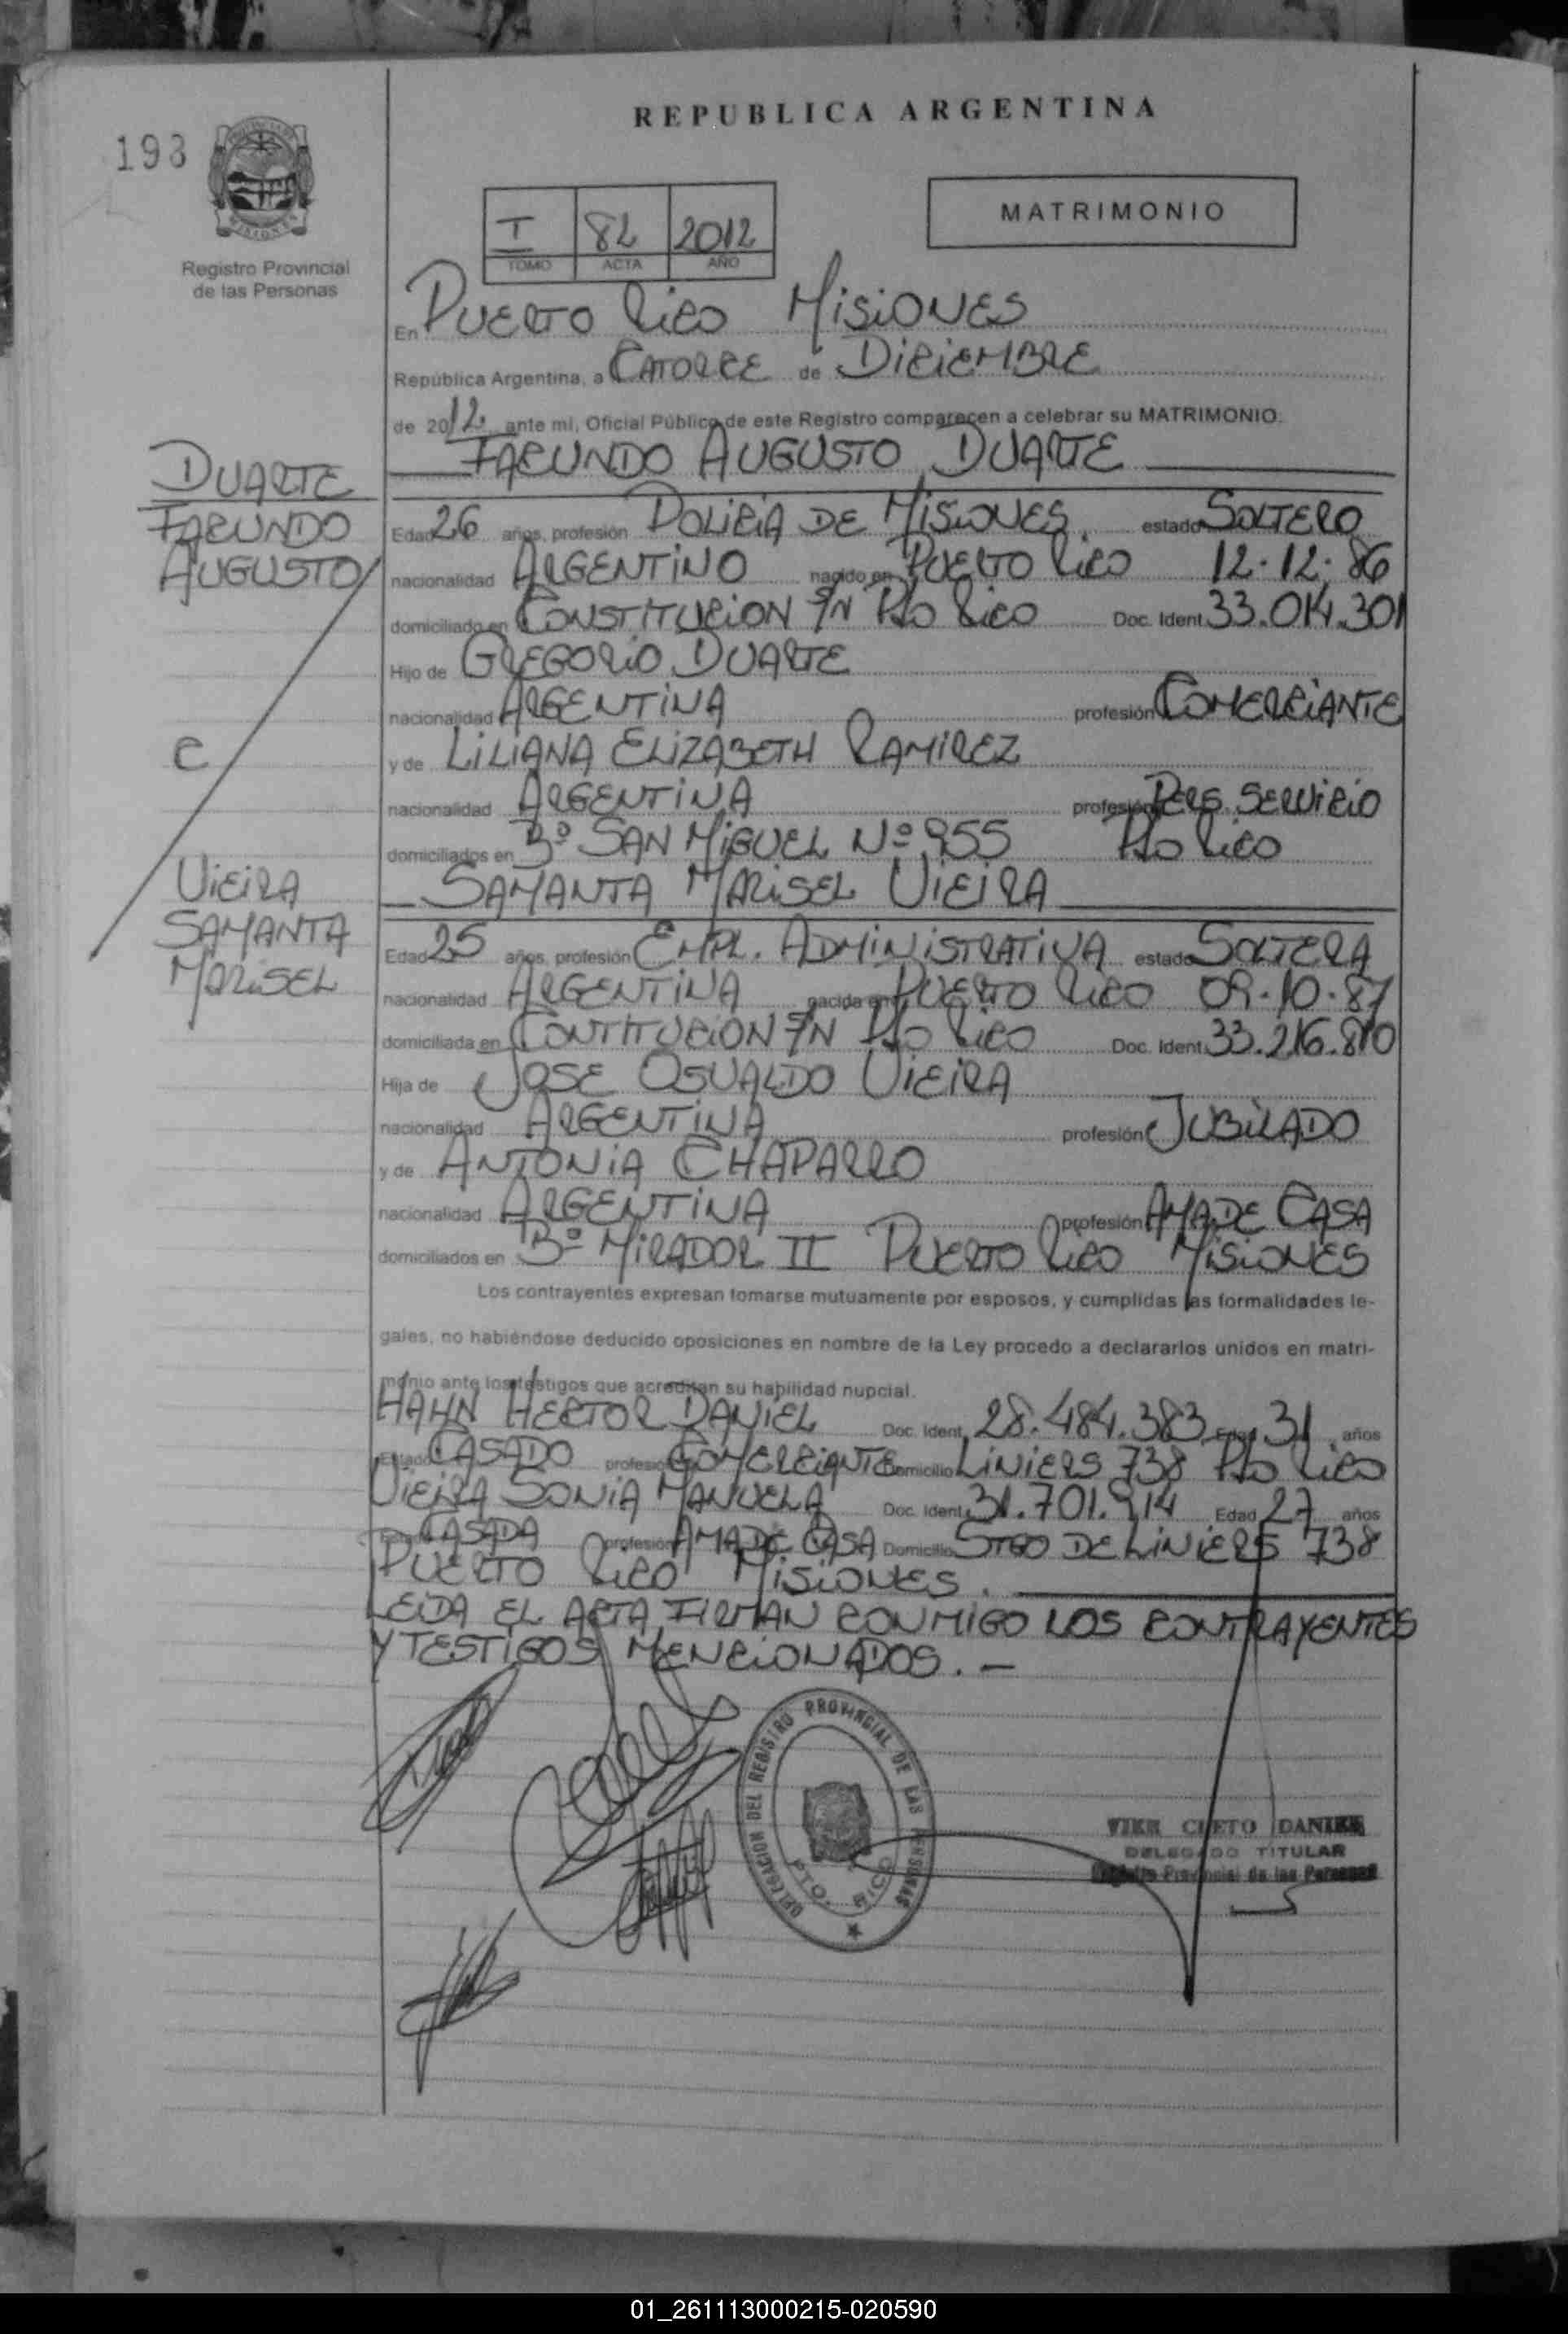 REPUBLICA ARGENTINA
193
MATRIMONIO
I 82 2012
TOMO ACTA AÑO
Registro Provincial
de las Personas
En PUERTO RICO MISIONES
República Argentina, a CATORCE de DICIEMBRE
de 2012 ante mi, Oficial Público de este Registro comparecen a celebrar su MATRIMONIO:
FACUNDO AUGUSTO DUARTE
DUARTE
FACUNDO
AUGUSTO
Edad 26 años, profesión POLICIA DE MISIONES. estado SOLTERO
nacionalidad ARGENTINO nacido en PUERTO RICO 12-12-86
domiciliado en CONSTITUCION S/N Pto RICO Doc. Ident. 33.014.301
Hijo de GREGORIO DUARTE
nacionalidad ARGENTINA profesión COMERCIANTE
y de LILIANA ELIZABETH RAMIREZ
C
nacionalidad ARGENTINA profesión PERS. SERVICIO
domiciliados en Bº SAN MIGUEL Nº 955 Pto RICO
SAMANTA MARISEL VIEIRA
VIEIRA
SAMANTA
MARISEL
Edad 25 años, profesión EMPL. ADMINISTRATIVA estado SOLTERA
nacionalidad ARGENTINA nacida en PUERTO RICO 09-10-87
domiciliada en CONTITUCION S/N Pto RICO Doc. Ident. 33.216.810
Hija de JOSE OSVALDO VIEIRA
nacionalidad ARGENTINA profesión JUBILADO
y de ANTONIA CHAPARRO
nacionalidad ARGENTINA profesión AMA DE CASA
domiciliados en Bº MIRADOR II PUERTO RICO MISIONES
Los contrayentes expresan tomarse mutuamente por esposos, y cumplidas las formalidades le-
gales, no habiéndose deducido oposiciones en nombre de la Ley procedo a declararlos unidos en matri-
monio ante los testigos que acreditan su habilidad nupcial.
HAHN HECTOR DANIEL Doc. Ident. 28.484.383 Edad 31 años
Estado CASADO profesión COMERCIANTE Domicilio LINIERS 738 Pto RICO
VIEIRA SONIA MANUELA Doc. Ident. 31.701.914 Edad 27 años
Estado CASADA profesión AMA DE CASA Domicilio STGO DE LINIERS 738
PUERTO RICO MISIONES.
LEIDA EL ACTA FIRMAN CONMIGO LOS CONTRAYENTES
Y TESTIGOS MENCIONADOS. —
DELEGACION DEL REGISTRO PROVINCIAL DE LAS PERSONAS
PTO. RICO
DELEGADO TITULAR
Registro Provincial de las Personas
01_261113000215-020590